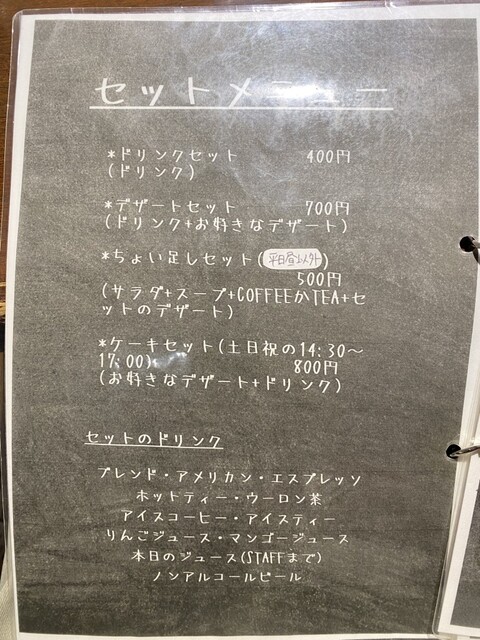 セットメニュー
*ドリンクセット 400円
(ドリンク)
*デザートセット 700円
(ドリンク+お好きなデザート)
*ちょい足しセット(平日昼以外)
500円
(サラダ+スープ+COFFEEかTEA+セ
ットのデザート)
*ケーキセット(土日祝の14:30〜
17:00) 800円
(お好きなデザート+ドリンク)
セットのドリンク
ブレンド・アメリカン・エスプレッソ
ホットティー・ウーロン茶
アイスコーヒー・アイスティー
りんごジュース・マンゴージュース
本日のジュース(STAFFまで)
ノンアルコールビール